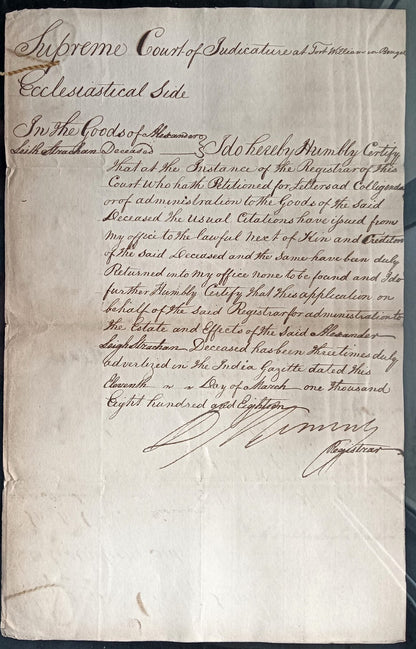 Supreme Court of Judicature at Fort William in Bengal
Ecclesiastical Side
In the Goods of Alexander
Leith Strachan Deceased } I do hereby Humbly Certify
that at the Instance of the Registrar of this
Court who hath Petitioned for Letters ad Colligenda
or of administration to the Goods of the Said
Deceased the Usual Citations have issued from
my office to the lawful next of Kin and Creditors
of the Said Deceased and the same have been duly
Returned into my office none to be found and I do
further Humbly Certify that this application on
behalf of the Said Registrar for administration to
the Estate and Effects of the Said Alexander
Leigh Strachan Deceased has been three times duly
advertized in the India Gazette dated this
Eleventh Day of March one thousand
Eight hundred and Eighteen
Registrar